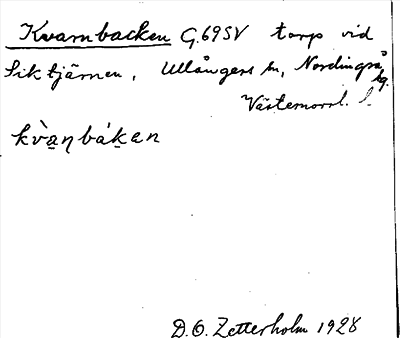 Kvarnbacken G.69SV torp vid
Siktjärnen, Ullångers sn, Nordingrå
tg.
Västernorrl. l.
kv̀a̱ƞbák̠en
D.O. Zetterholm 1928